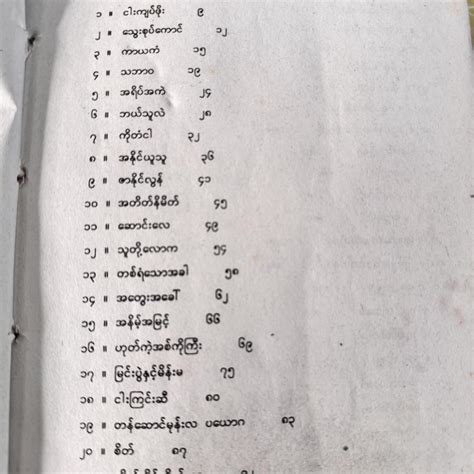 ၁ ။ ငါးကျပ်ဖိုး ၉
၂ ။ သွေးစုပ်ကောင် ၁၂
၃ ။ ကာယကံ ၁၅
၄ ။ သဘာဝ ၁၉
၅ ။ အရိပ်အကဲ ၂၄
၆ ။ ဘယ်သူလဲ ၂၈
၇ ။ ကိုတံငါ ၃၂
၈ ။ အနိုင်ယူသူ ၃၆
၉ ။ ဇာနိုင်လွန် ၄၁
၁၀ ။ အတိတ်နိမိတ် ၄၅
၁၁ ။ ဆောင်းလေ ၄၉
၁၂ ။ သူတို့လောက ၅၄
၁၃ ။ တစ်ရံသောအခါ ၅၈
၁၄ ။ အတွေးအခေါ် ၆၂
၁၅ ။ အနိမ့်အမြင့် ၆၆
၁၆ ။ ဟုတ်ကဲ့အစ်ကိုကြီး ၆၉
၁၇ ။ မြင်းပွဲနှင့်မိန်းမ ၇၅
၁၈ ။ ငါးကြင်းဆီ ၈၀
၁၉ ။ တန်ဆောင်မုန်းလ ပယောဂ ၈၃
၂၀ ။ စိတ် ၈၇